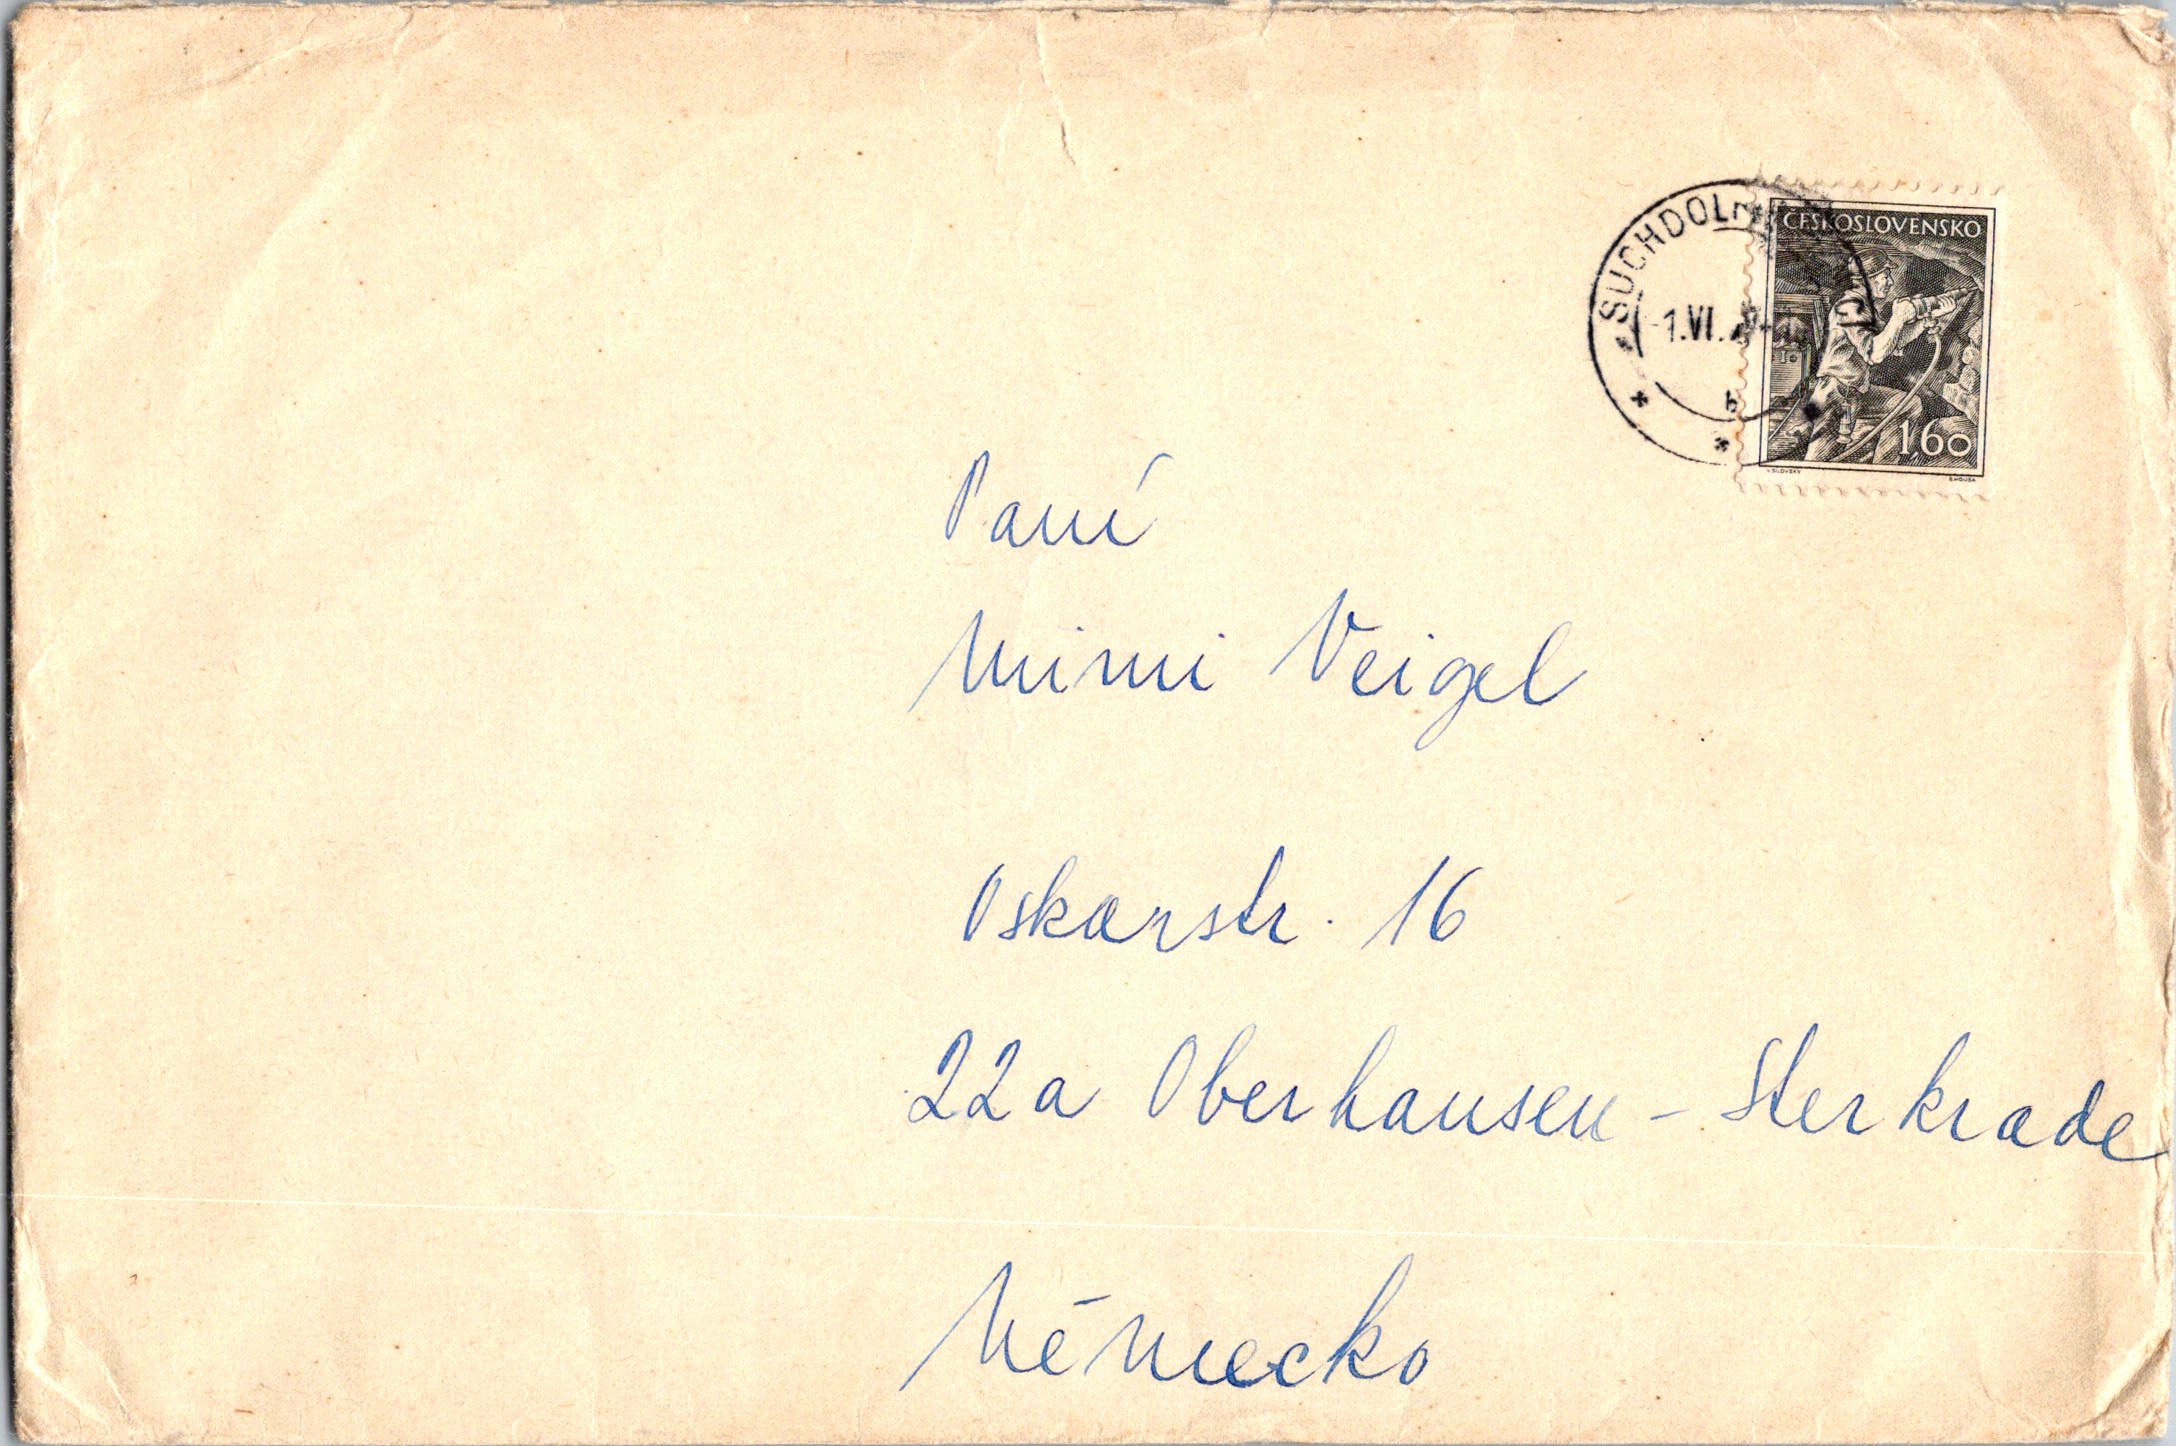 ČESKOSLOVENSKO
SUCHDOL
1.VI.
b
1,60
Paní
Mimi Veigel
Oskarstr. 16
22a Oberhausen - Sterkrade
Německo